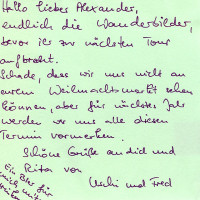 Hallo lieber Alexander,
endlich die Wanderbilder,
bevor ihr zur nächsten Tour
aufbrecht.
Schade, dass wir uns nicht an
eurem Weihnachtsmarkt sehen
können, aber für nächstes Jahr
werden wir uns alle diesen
Termin vormerken.
Schöne Grüße an dich und
Rita von
Uschi und Fred
Ein Bier für
mich mit